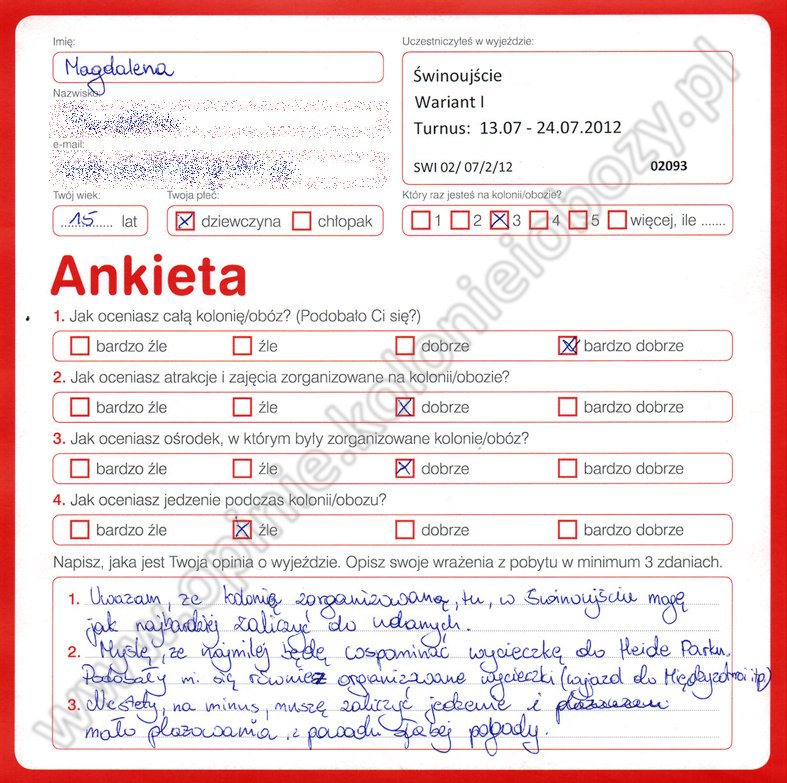 Imię:
Magdalena
Uczestniczyłeś w wyjeździe:
Świnoujście
Wariant I
Turnus: 13.07 - 24.07.2012
SWI 02/ 07/2/12 02093
Nazwisko:
e-mail:
Twój wiek:
15 lat
Twoja płeć:
dziewczyna chłopak
Który raz jesteś na kolonii/obozie?
1 2 3 4 5 więcej, ile .......
Ankieta
1. Jak oceniasz całą kolonię/obóz? (Podobało Ci się?)
bardzo źle źle dobrze bardzo dobrze
2. Jak oceniasz atrakcje i zajęcia zorganizowane na kolonii/obozie?
bardzo źle źle dobrze bardzo dobrze
3. Jak oceniasz ośrodek, w którym byly zorganizowane kolonie/obóz?
bardzo źle źle dobrze bardzo dobrze
4. Jak oceniasz jedzenie podczas kolonii/obozu?
bardzo źle źle dobrze bardzo dobrze
Napisz, jaka jest Twoja opinia o wyjeździe. Opisz swoje wrażenia z pobytu w minimum 3 zdaniach.
1. Uważam, że kolonię zorganizowaną, tu, w Świnoujściu mogę
jak najbardziej zaliczyć do udanych.
2. Myślę, że najmilej będę wspominać wycieczkę do Heide Parku.
Podobały mi się również organizowane wycieczki (wyjazd do Międzyzdroi itp)
3. Niestety, na minus, muszę zaliczyć jedzenie i
mało plażowania, z powodu słabej pogody.
www.opinie.kolonieiobozy.pl